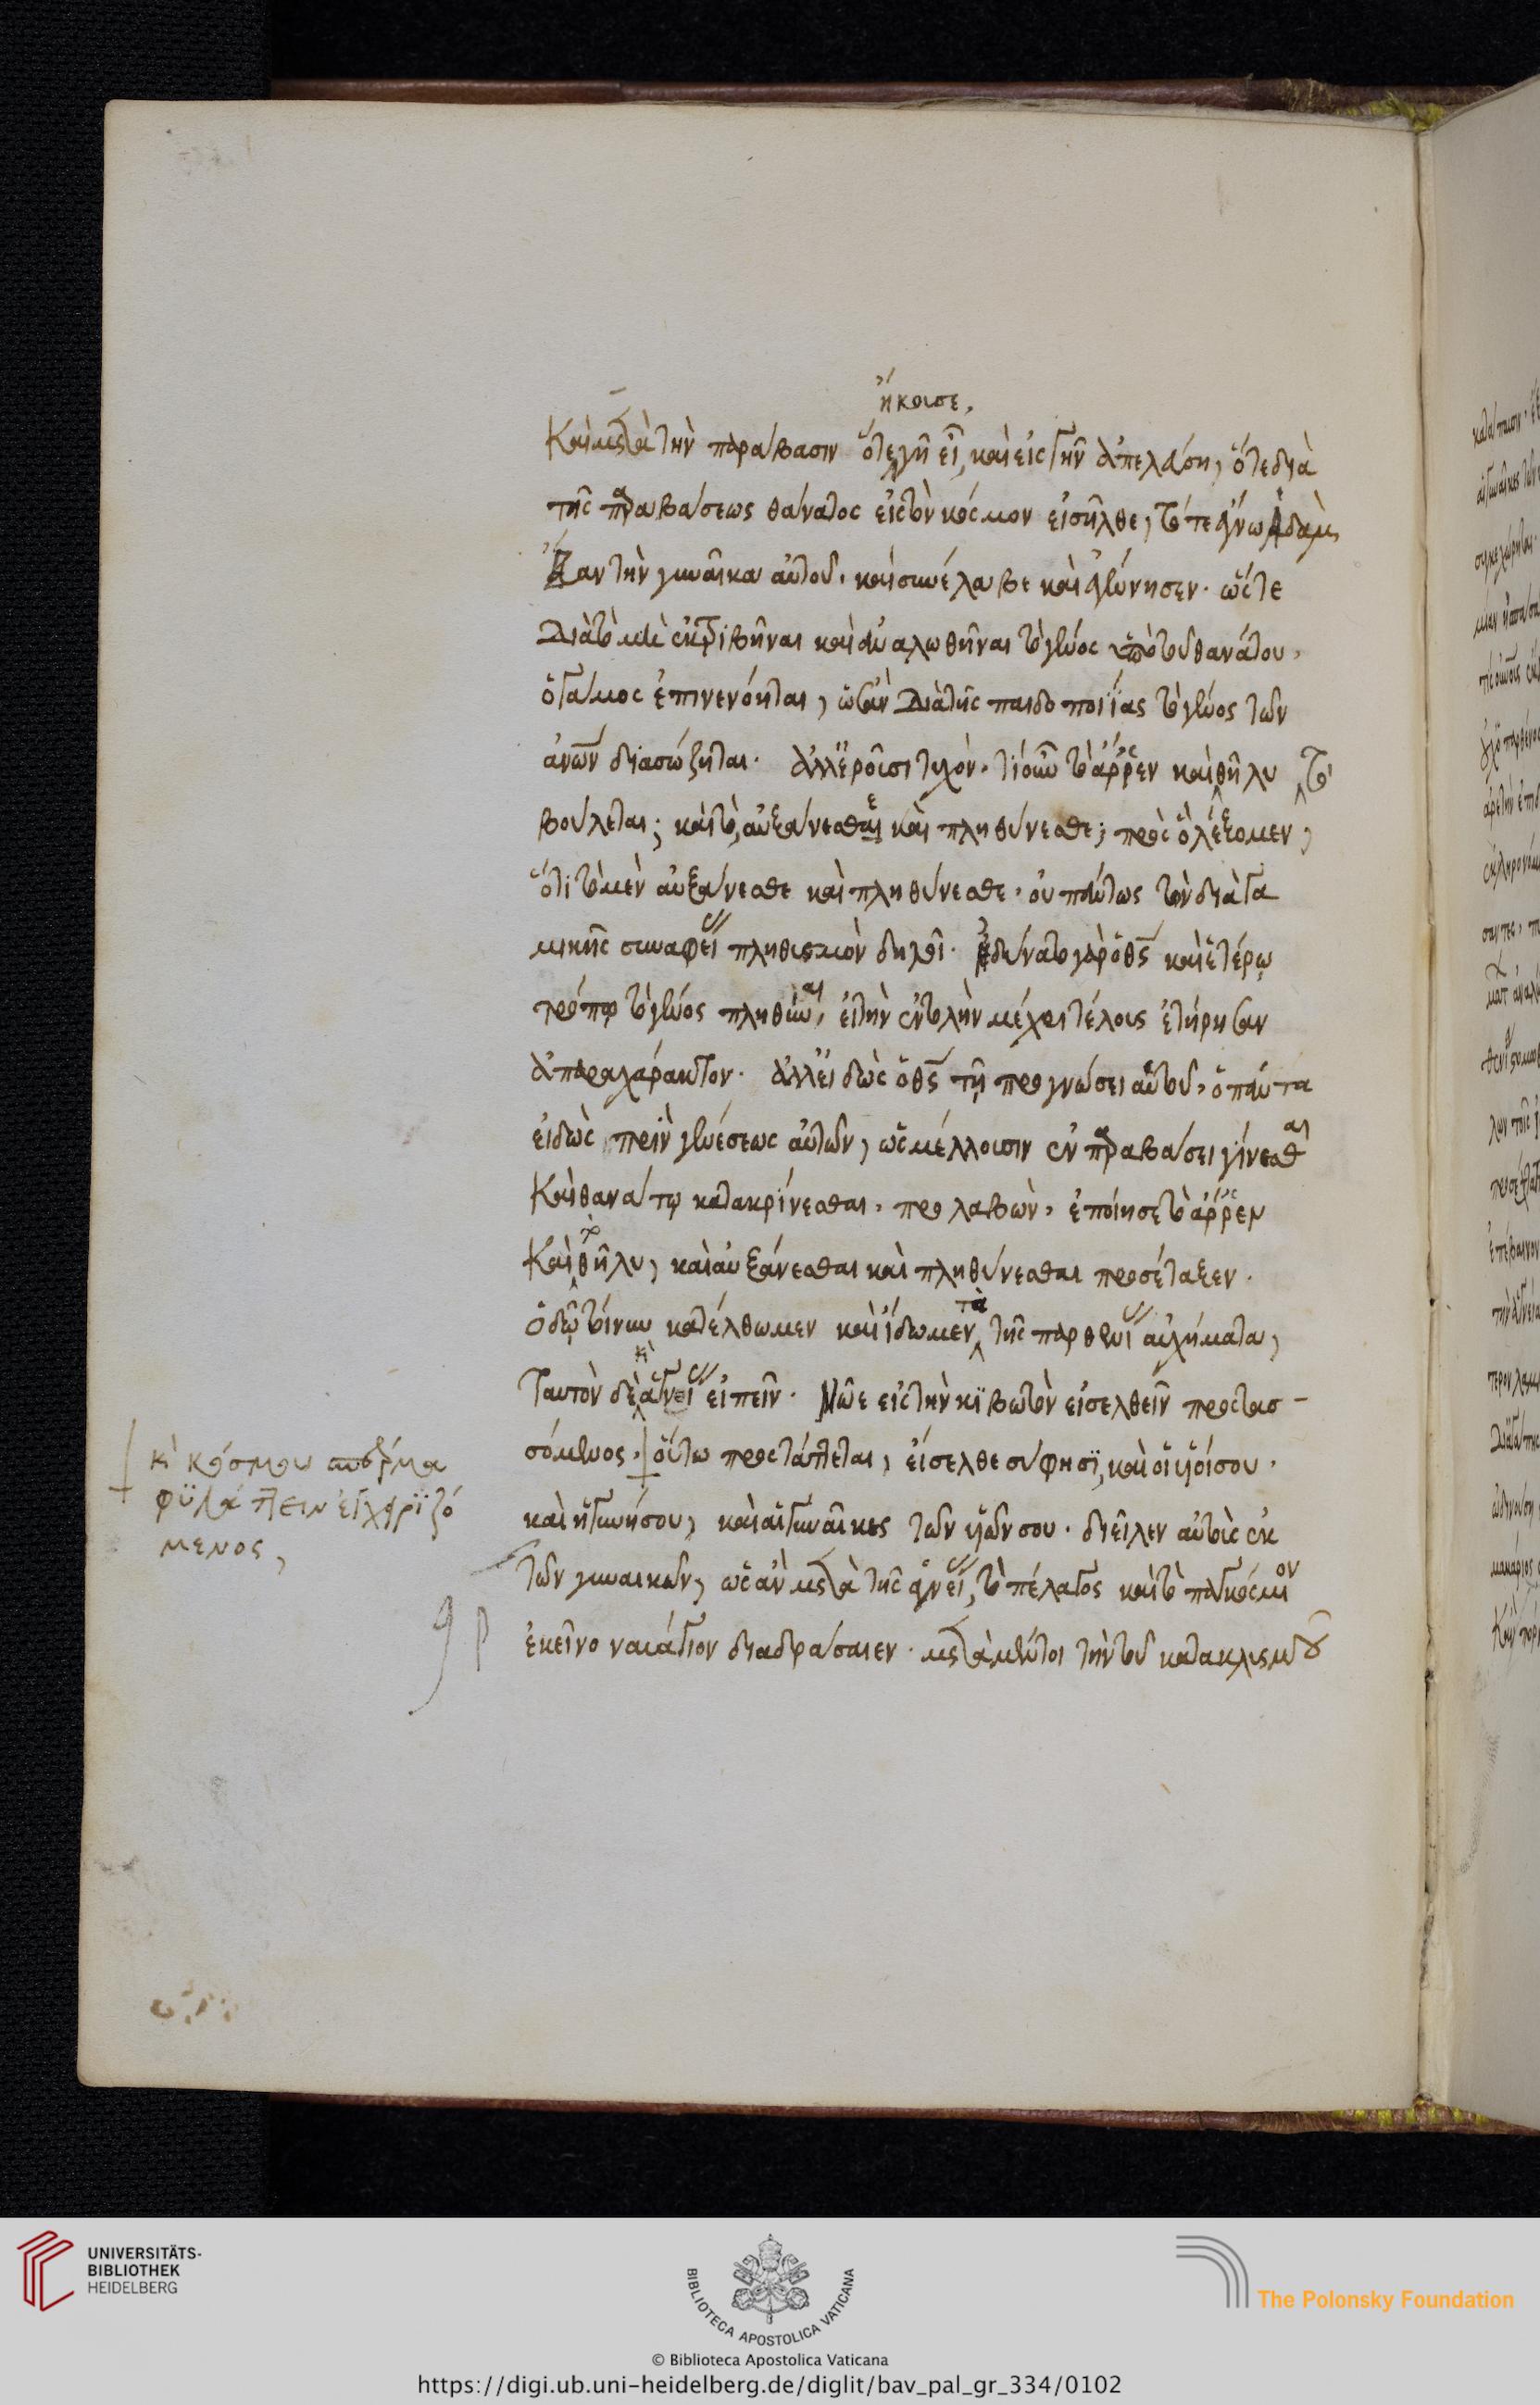 ἤκουσε,
Καὶ μετὰ τὴν παράβασιν ὅτε γῆ εἶ, καὶ εἰς γῆν ἀπελεύσῃ, ὅτε διὰ
τῆς παραβάσεως θάνατος εἰς τὸν κόσμον εἰσῆλθε, τότε ἔγνω Ἀδὰμ
Εὔαν τὴν γυναῖκα αὐτοῦ. καὶ συνέλαβε καὶ ἐγέννησεν. ὥστε
διὰ τὸ μὴ ἐκτριβῆναι καὶ ἀναλωθῆναι τὸ γένος ὑπὸ τοῦ θανάτου,
ὁ γάμος ἐπινενόηται, ὡς ἂν διὰ τῆς παιδοποιΐας τὸ γένος τῶν
ἀνων διασώζηται. ἀλλ' ἐροῦσι τυχόν. τί οὖν τὸ ἄρρεν καὶ θῆλυ τὸ
βούλεται; καὶ τὸ, αὐξάνεσθαι καὶ πληθύνεσθε; πρὸς ὃ λέξομεν,
ὅτι τὸ μὲν αὐξάνεσθε καὶ πληθύνεσθε, οὐ πάντως τὸν διὰ γα
μικῆς συναφείας πληθυσμὸν δηλοῖ. ἐδύνατο γὰρ ὁ θς καὶ ἑτέρῳ
τρόπῳ τὸ γένος πληθῦναι, εἰ τὴν ἐντολὴν μέχρι τέλους ἐτήρησαν
ἀπαραχάρακτον. ἀλλ' εἰδὼς ὁ θς τῇ προγνώσει αὐτοῦ, ὁ πάντα
εἰδὼς πρὶν γενέσεως αὐτῶν, ὡς μέλλουσιν ἐν παραβάσει γίνεσθαι
Καὶ θανάτῳ κατακρίνεσθαι, προλαβὼν, ἐποίησε τὸ ἄρρεν
Καὶ τὸ θῆλυ, καὶ αὐξάνεσθαι καὶ πληθύνεσθαι προσέταξεν.
ὁδῷ τοίνυν κατέλθωμεν καὶ ἴδωμεν τὰ τῆς παρθενίας αὐχήματα,
Ταυτὸν δὲ κὶ ἁγνείας εἰπεῖν. Νῶε εἰς τὴν κιβωτὸν εἰσελθεῖν προστασ-
σόμενος, οὕτω προστάττεται, εἴσελθε σὺ φησὶ, καὶ οἱ υἱοί σου.
καὶ ἡ γυνή σου, καὶ αἱ γυναῖκες τῶν υἱῶν σου. διεῖλεν αὐτοὺς ἐκ
τῶν γυναικῶν, ὡς ἂν μετὰ τῆς ἁγνείας, τὸ πέλαγος καὶ τὸ παγκόσμιον
ἐκεῖνο ναυάγιον διαδράσαιεν. μετὰ μέντοι τὴν τοῦ κατακλυσμοῦ
κὶ κόσμου σπέρμα
φϋλάττειν ἐγχειρϊζό
μενος,
UNIVERSITÄTS-
BIBLIOTHEK
HEIDELBERG
BIBLIOTECA APOSTOLICA VATICANA
The Polonsky Foundation
© Biblioteca Apostolica Vaticana
https://digi.ub.uni-heidelberg.de/diglit/bav_pal_gr_334/0102